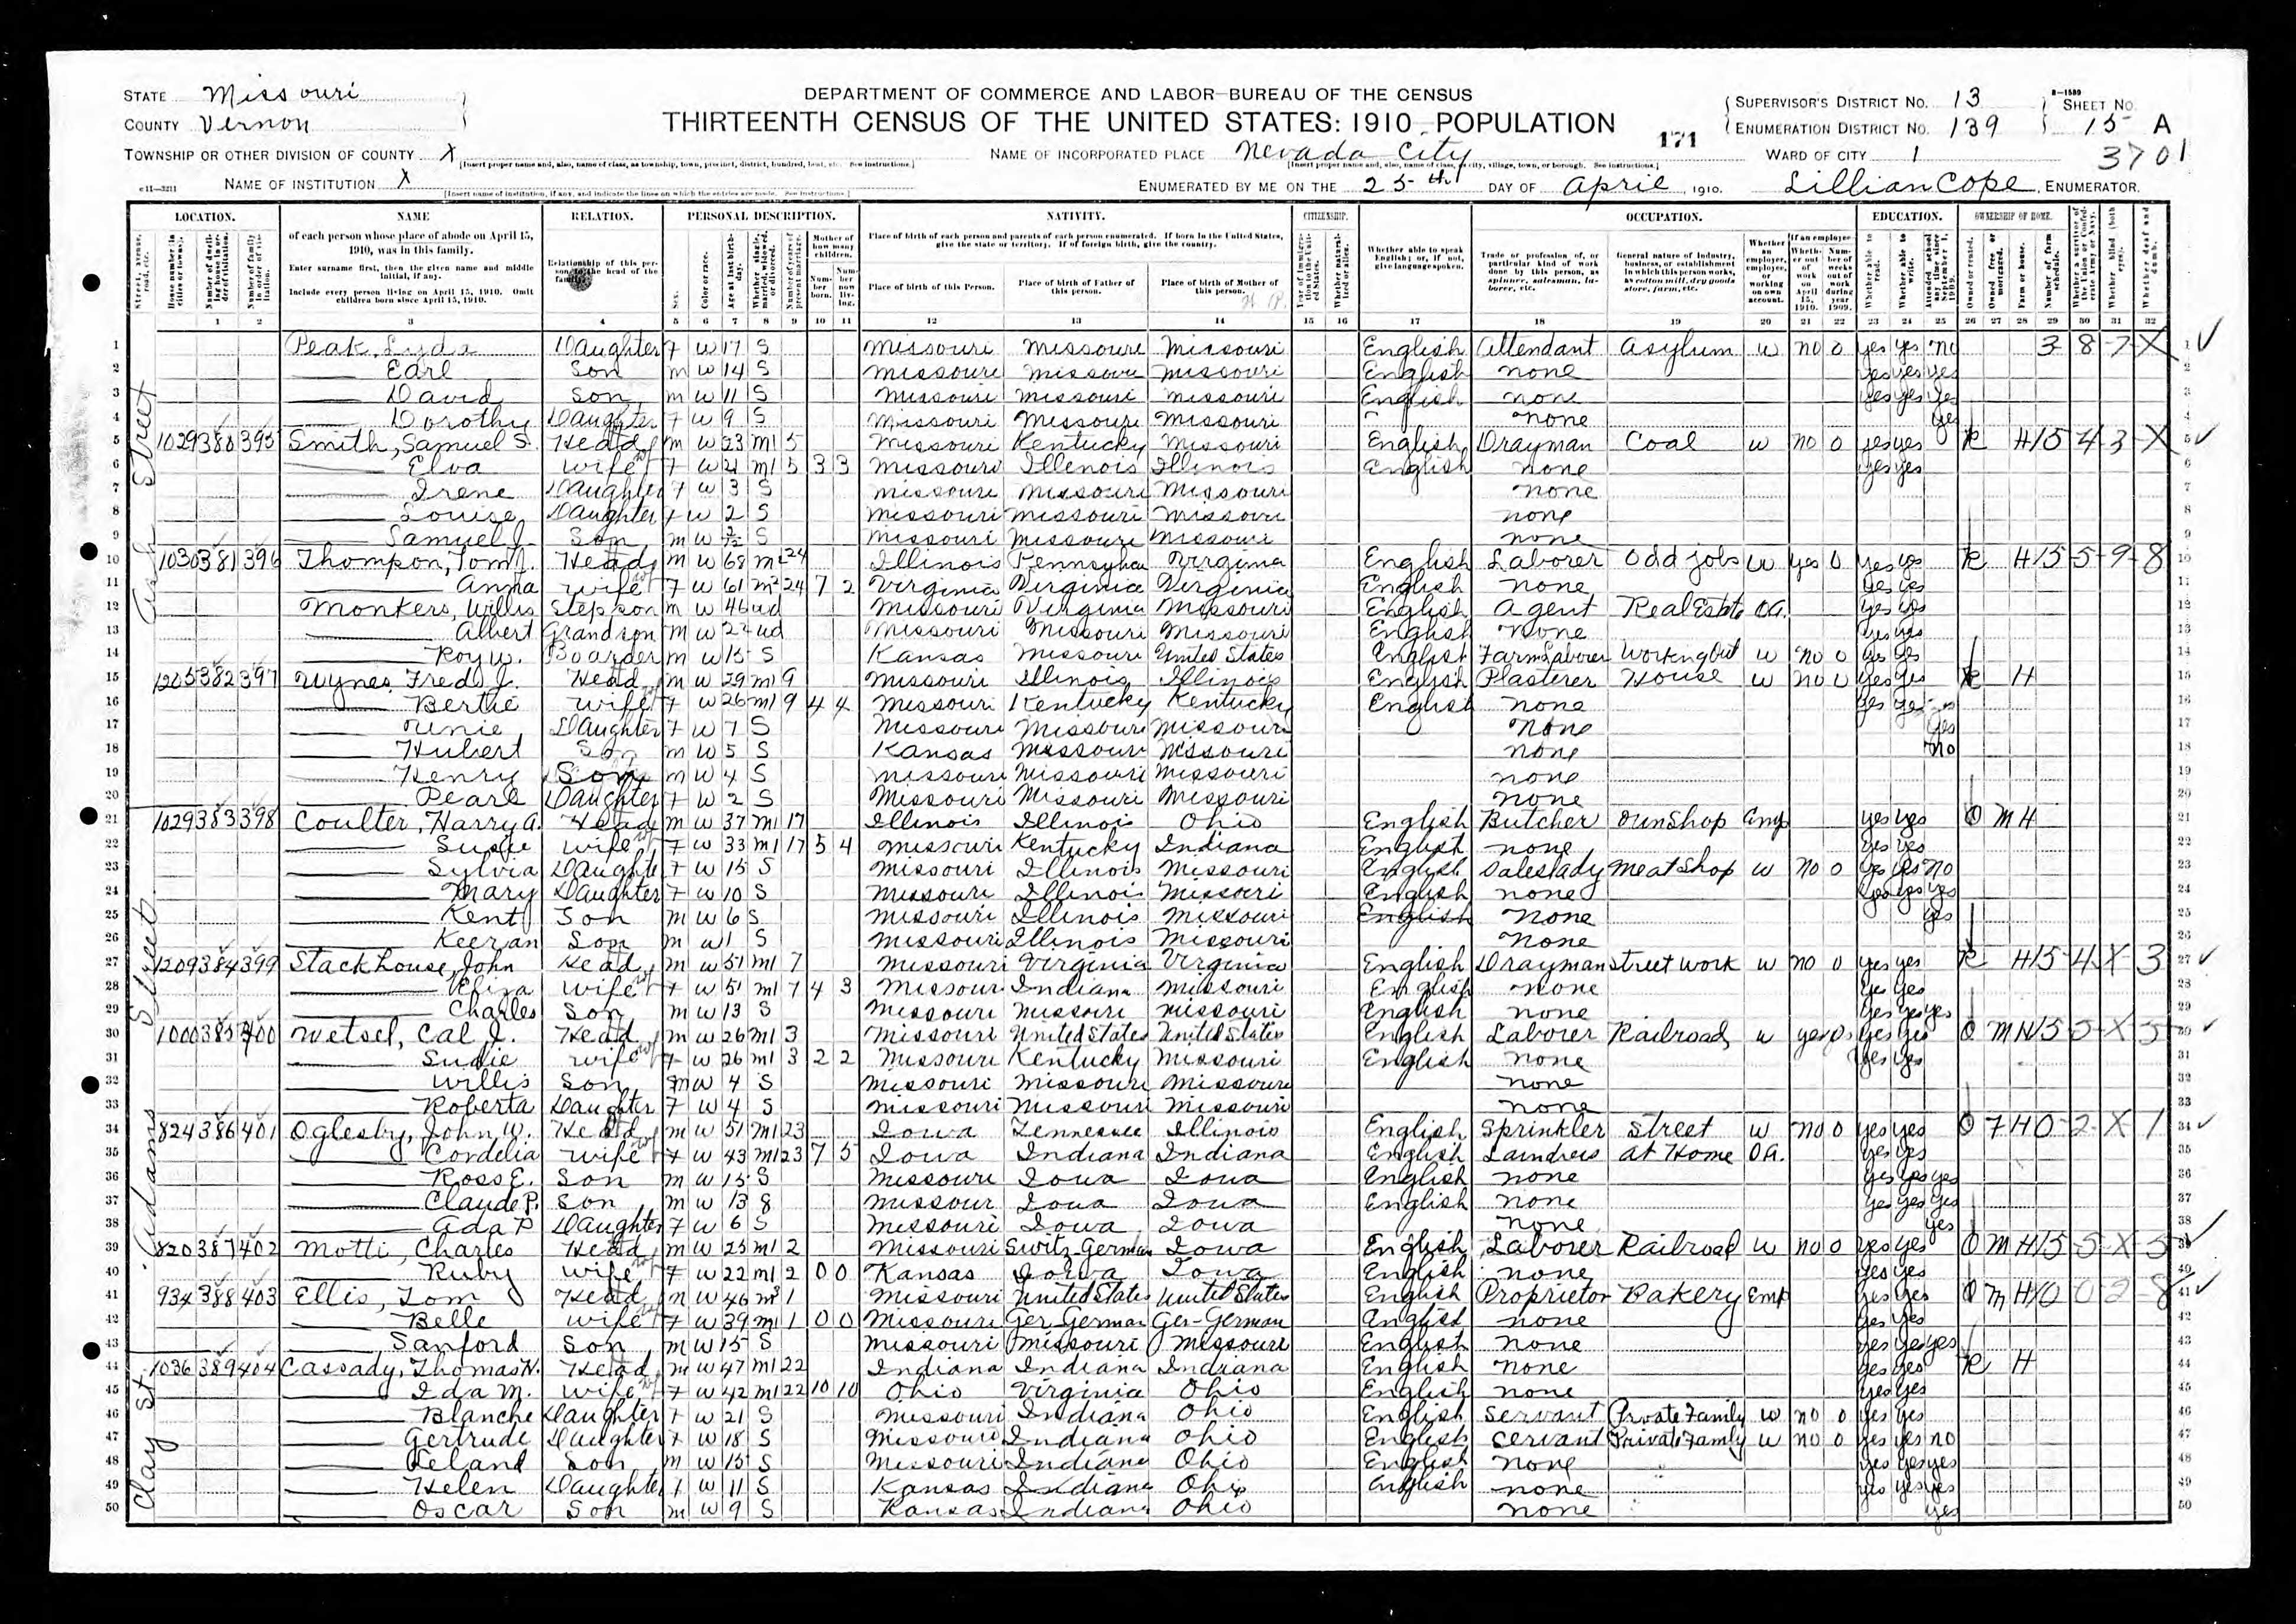 STATE Missouri
COUNTY Vernon
TOWNSHIP OR OTHER DIVISION OF COUNTY X
[Insert proper name and, also, name of class, as township, town, precinct, district, hundred, beat, etc. See instructions.]
NAME OF INSTITUTION X
[Insert name of institution, if any, and indicate the lines on which the entries are made. See instructions.]
DEPARTMENT OF COMMERCE AND LABOR—BUREAU OF THE CENSUS
THIRTEENTH CENSUS OF THE UNITED STATES: 1910 POPULATION
NAME OF INCORPORATED PLACE Nevada City
[Insert proper name and, also, name of class, as city, village, town, or borough. See instructions.]
ENUMERATED BY ME ON THE 25th DAY OF April, 1910.
171
SUPERVISOR'S DISTRICT No. 13
ENUMERATION DISTRICT No. 139
SHEET No. 15 A
WARD OF CITY 1
3701
Lillian Cope, ENUMERATOR.
LOCATION. NAME RELATION. PERSONAL DESCRIPTION. NATIVITY. CITIZENSHIP. OCCUPATION. EDUCATION. OWNERSHIP OF HOME.
of each person whose place of abode on April 15, 1910, was in this family.
Enter surname first, then the given name and middle initial, if any.
Include every person living on April 15, 1910. Omit children born since April 15, 1910.
Relationship of this person to the head of the family.
Place of birth of each person and parents of each person enumerated. If born in the United States, give the state or territory. If of foreign birth, give the country.
Place of birth of this Person. Place of birth of Father of this person. Place of birth of Mother of this person.
Whether able to speak English; or, if not, give language spoken.
1 2 3 4 5 6 7 8 9 10 11 12 13 14 15 16 17 18 19 20 21 22 23 24 25 26 27 28 29 30 31 32
Ash Street
1 Peak, Lyda Daughter F W 17 S Missouri Missouri Missouri English Attendant Asylum W no 0 yes yes no 3 8 7 X
2 Earl Son m W 14 S Missouri Missouri Missouri English none yes yes yes
3 David Son m W 11 S Missouri Missouri Missouri English none yes yes yes
4 Dorothy Daughter F W 9 S Missouri Missouri Missouri none yes
5 1029 380 395 Smith, Samuel S. Head m W 23 m1 5 Missouri Kentucky Missouri English Drayman Coal W no 0 yes yes R H 15 4 3 X
6 Elva wife F W 21 m1 5 3 3 Missouri Illinois Illinois English none yes yes
7 Irene Daughter F W 3 S Missouri Missouri Missouri none
8 Louise Daughter F W 2 S Missouri Missouri Missouri none
9 Samuel J. Son m W S Missouri Missouri Missouri none
10 1030 381 396 Thompson, Tom J. Head m W 68 m2 24 Illinois Pennsylvan Virginia English Laborer odd jobs W yes 0 yes yes R H 15 5 9 8
11 Anna wife F W 61 m2 24 7 2 Virginia Virginia Virginia English none yes yes
12 Monkers, Willis Stepson m W 46 wd Missouri Virginia Missouri English agent Real Estate OA. yes yes
13 Albert Grandson m W 22 wd Missouri Missouri Missouri English none yes yes
14 Roy W. Boarder m W 15 S Kansas Missouri United States English Farm Laborer Working Out W no 0 yes yes
15 1205 382 397 Wynes, Fred J. Head m W 29 m1 9 Missouri Illinois Illinois English Plasterer House W no 0 yes yes R H
16 Bertie wife F W 26 m1 9 4 4 Missouri Kentucky Kentucky English none yes yes
17 Daughter F W 7 S Missouri Missouri Missouri none yes
18 Hubert Son m W 5 S Kansas Missouri Missouri none no
19 Henry Son m W 4 S Missouri Missouri Missouri none
20 Pearl Daughter F W 2 S Missouri Missouri Missouri none
Adams Street
21 1029 383 398 Coulter, Harry A. Head m W 37 m1 17 Illinois Illinois Ohio English Butcher own Shop Emp yes yes O M H
22 Susie wife F W 33 m1 17 5 4 Missouri Kentucky Indiana English none yes yes
23 Sylvia Daughter F W 15 S Missouri Illinois Missouri English Saleslady Meat Shop W no 0 yes yes no
24 Mary Daughter F W 10 S Missouri Illinois Missouri English none yes yes yes
25 Kent Son m W 6 S Missouri Illinois Missouri English none yes
26 Keeran Son m W 1 S Missouri Illinois Missouri none
27 1209 384 399 Stackhouse, John Head m W 51 m1 7 Missouri Virginia Virginia English Drayman Street work W no 0 yes yes R H 15 4 X 3
28 Eliza wife F W 51 m1 7 4 3 Missouri Indiana Missouri English none yes yes
29 Charles Son m W 13 S Missouri Missouri Missouri English none yes yes yes
30 1000 385 400 Wetsel, Cal J. Head m W 26 m1 3 Missouri United States United States English Laborer Railroad W yes yes yes O M H 15 5 X 5
31 Sudie wife F W 26 m1 3 2 2 Missouri Kentucky Missouri English none yes yes
32 Willis Son m W 4 S Missouri Missouri Missouri none
33 Roberta Daughter F W 4 S Missouri Missouri Missouri none
34 824 386 401 Oglesby, John W. Head m W 51 m1 23 Iowa Tennessee Illinois English Sprinkler Street W no 0 yes yes O F H 0 2 X 1
35 Cordelia wife F W 43 m1 23 7 5 Iowa Indiana Indiana English Laundress at Home OA. yes yes
36 Ross E. Son m W 15 S Missouri Iowa Iowa English none yes yes yes
37 Claude P. Son m W 13 S Missouri Iowa Iowa English none yes yes yes
38 Ada P Daughter F W 6 S Missouri Iowa Iowa none yes
39 820 387 402 Motti, Charles Head m W 25 m1 2 Missouri Switz-German Iowa English Laborer Railroad W no 0 yes yes O M H 15 5 X 5
40 Ruby wife F W 22 m1 2 0 0 Kansas Iowa Iowa English none yes yes
41 934 388 403 Ellis, Tom Head m W 46 m3 1 Missouri United States United States English Proprietor Bakery Emp yes yes O M H 10 0 2 8
42 Belle wife F W 39 m1 1 0 0 Missouri Ger-German Ger-German English none yes yes
43 Sanford Son m W 15 S Missouri Missouri Missouri English none yes yes yes
Clay St.
44 1036 389 404 Cassady, Thomas N. Head m W 47 m1 22 Indiana Indiana Indiana English none yes yes R H
45 Ida M. wife F W 42 m1 22 10 10 Ohio Virginia Ohio English none yes yes
46 Blanche Daughter F W 21 S Missouri Indiana Ohio English Servant Private Family W no 0 yes yes
47 Gertrude Daughter F W 18 S Missouri Indiana Ohio English Servant Private Family W no 0 yes yes no
48 Leland Son m W 15 S Missouri Indiana Ohio English none yes yes yes
49 Helen Daughter F W 11 S Kansas Indiana Ohio English none yes yes yes
50 Oscar Son m W 9 S Kansas Indiana Ohio none yes